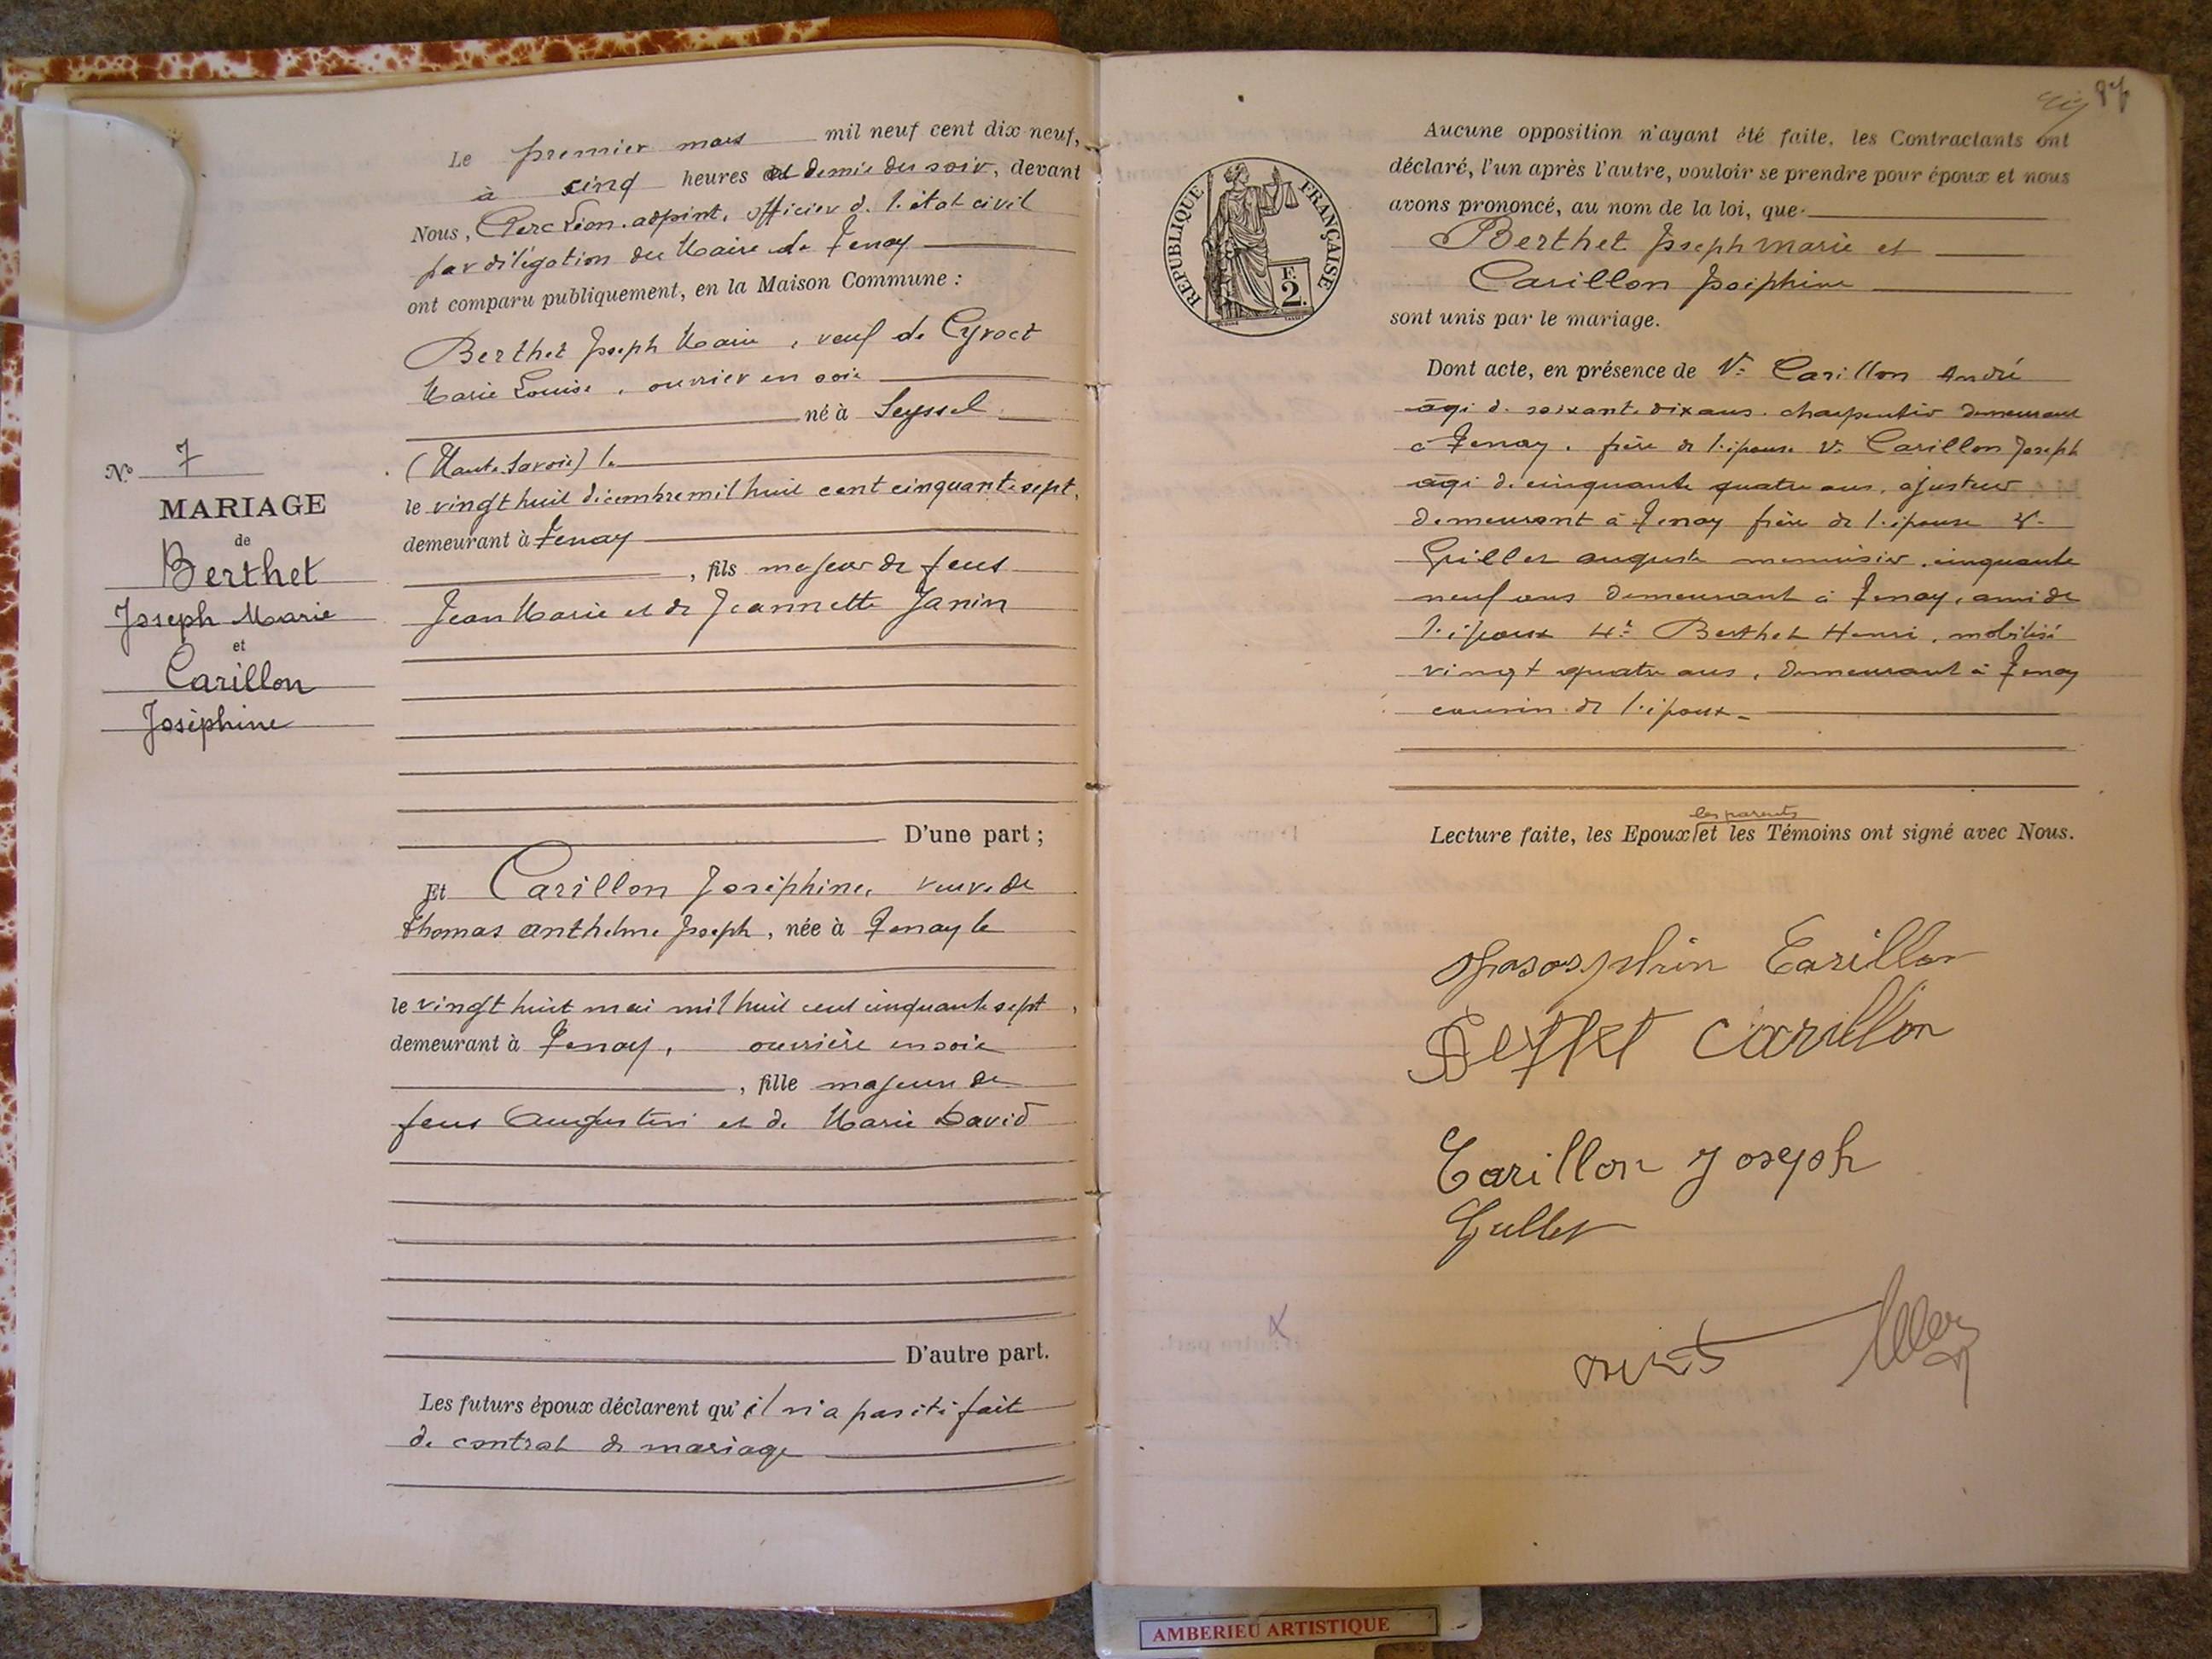 N° 7
MARIAGE
de
Berthet
Joseph Marie
et
Carillon
Joséphine
Le premier mars mil neuf cent dix neuf,
à cinq heures et demie du soir, devant
Nous, Clerc Léon. adjoint, officier de l'état civil
par délégation du Maire de Tenay
ont comparu publiquement, en la Maison Commune :
Berthet Joseph Marie, veuf de
Marie Louise, ouvrier en soie
né à Seyssel
(Haute Savoie) le
le vingt huit décembre mil huit cent cinquante sept,
demeurant à Tenay
, fils majeur de feus
Jean Marie et de Jeannette Janin
D'une part ;
Et Carillon Joséphine, veuve de
Thomas Anthelme Joseph, née à Tenay le
le vingt huit mai mil huit cent cinquante sept,
demeurant à Tenay, ouvrière en soie
, fille majeure de
feus Augustin et de Marie David
D'autre part.
Les futurs époux déclarent qu'il n'a pas été fait
de contrat de mariage
87
RÉPUBLIQUE FRANÇAISE
F.
2.
Aucune opposition n'ayant été faite, les Contractants ont
déclaré, l'un après l'autre, vouloir se prendre pour époux et nous
avons prononcé, au nom de la loi, que
Berthet Joseph Marie et
Carillon Joséphine
sont unis par le mariage.
Dont acte, en présence de Carillon André
âgé de soixante dix ans. charpentier demeurant
à Tenay, frère de l'épouse Carillon Joseph
âgé de cinquante quatre ans, ajusteur
demeurant à Tenay frère de l'épouse
Grillet auguste menuisier, cinquante
neuf ans demeurant à Tenay, ami de
l'époux 4° Berthet Henri, mobilisé
vingt quatre ans, demeurant à Tenay
cousin de l'époux
les parents
Lecture faite, les Epoux et les Témoins ont signé avec Nous.
Carillon
Berthet Carillon
Carillon Joseph
AMBERIEU ARTISTIQUE